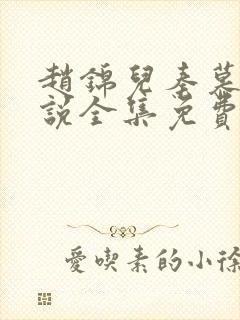 趙錦兒秦慕
說全集免費
愛喫素的小徐